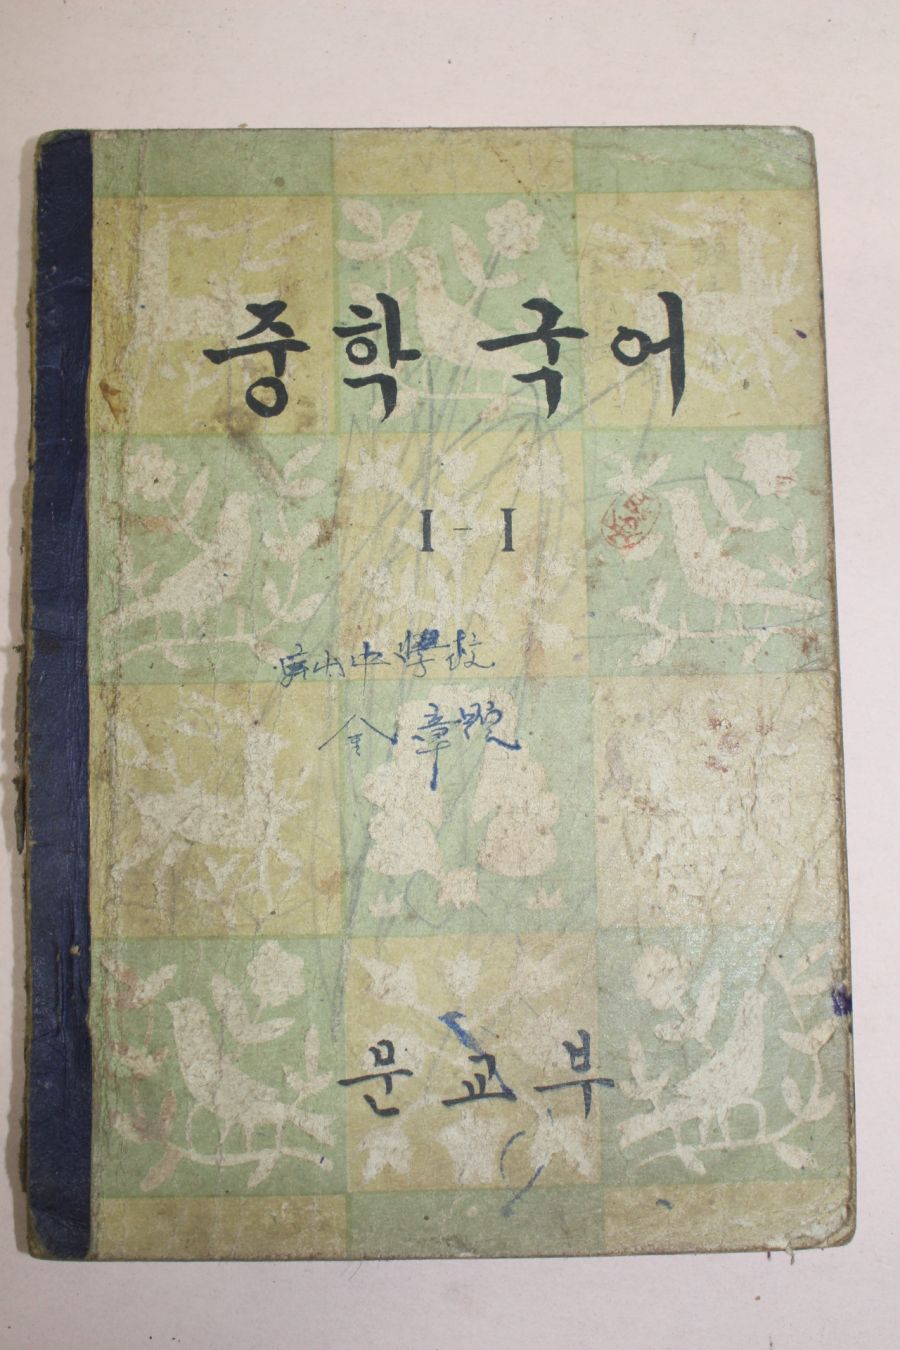 중학 국어
I-I
中學校
문교부